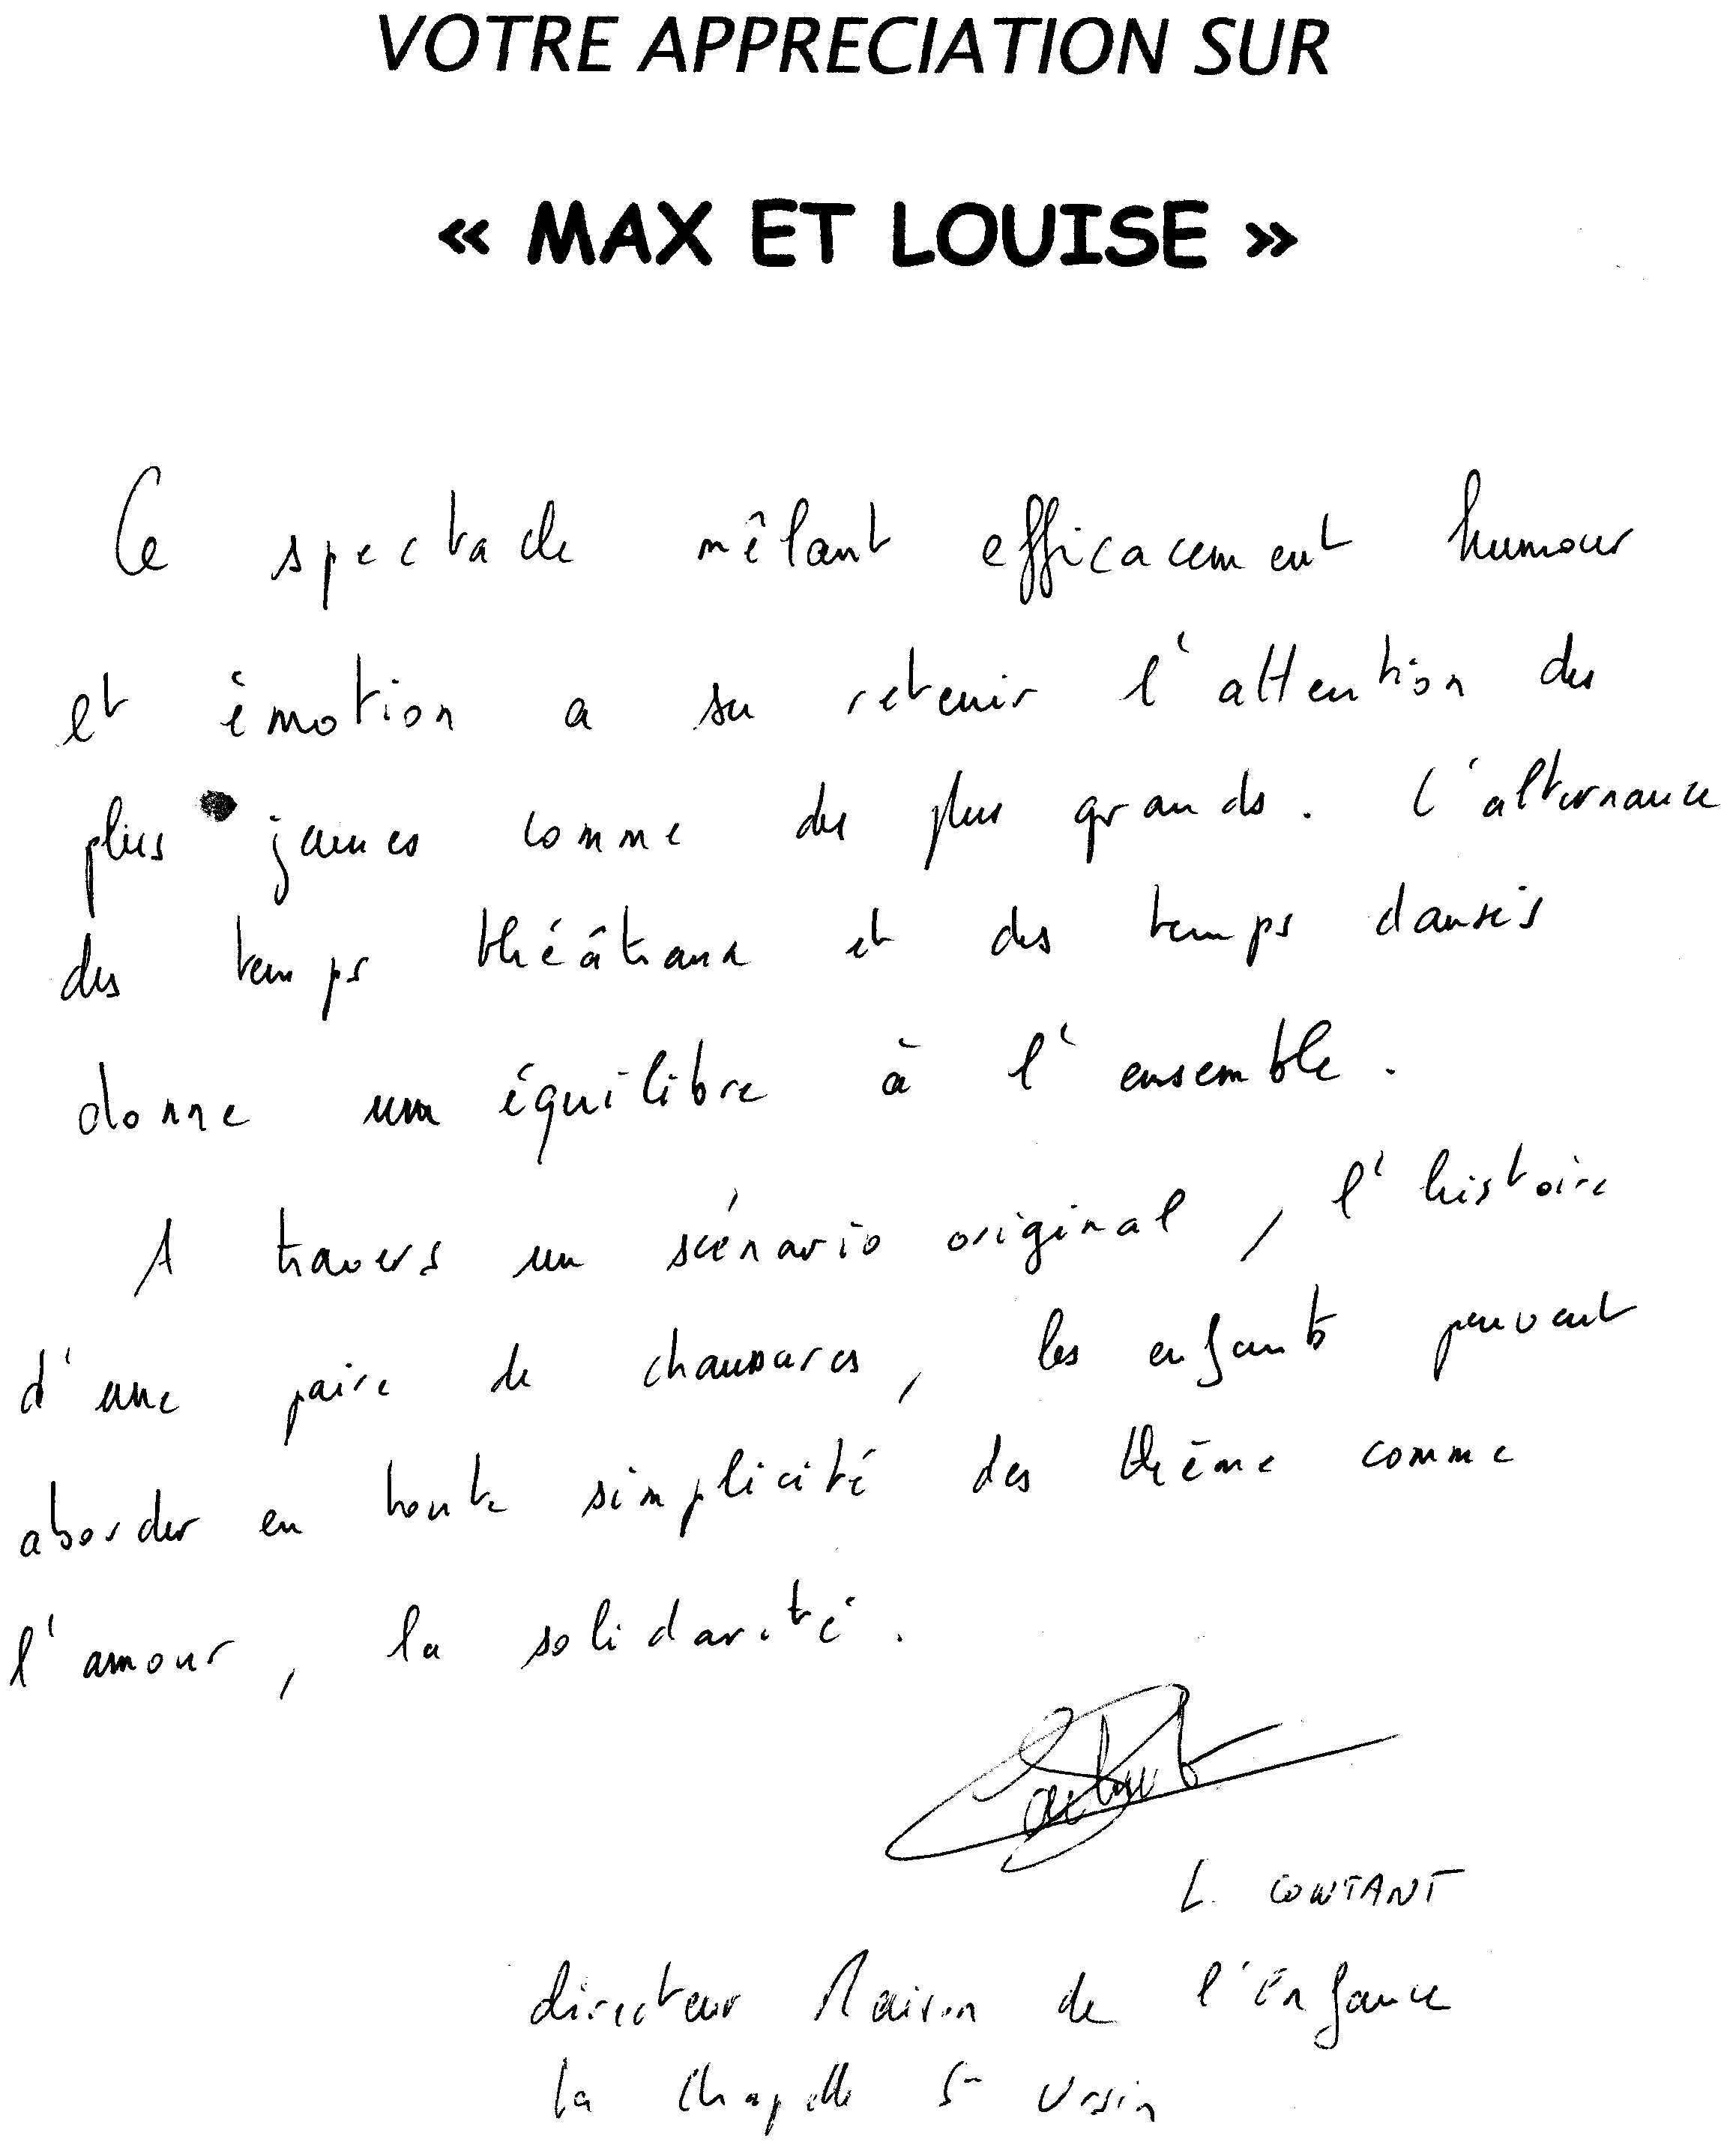 VOTRE APPRECIATION SUR
« MAX ET LOUISE »
Ce spectacle mêlant efficacement humour
et émotion a su retenir l'attention des
plus jeunes comme des plus grands. L'alternance
des temps théâtraux et des temps dansés
donne un équilibre à l'ensemble.
A travers un scénario original, l'histoire
d'une paire de chaussures, les enfants peuvent
aborder en toute simplicité des thème comme
l'amour, la solidarité.
L. CONTANT
directeur Maison de l'Enfance
la Chapelle St Ursin